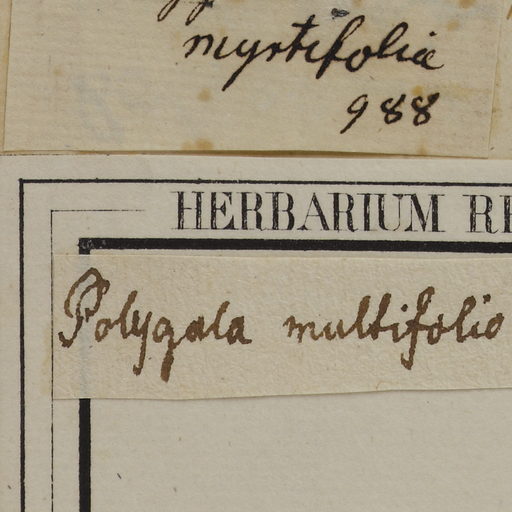 myrtifolia
988
HERBARIUM
Polygala multifolio